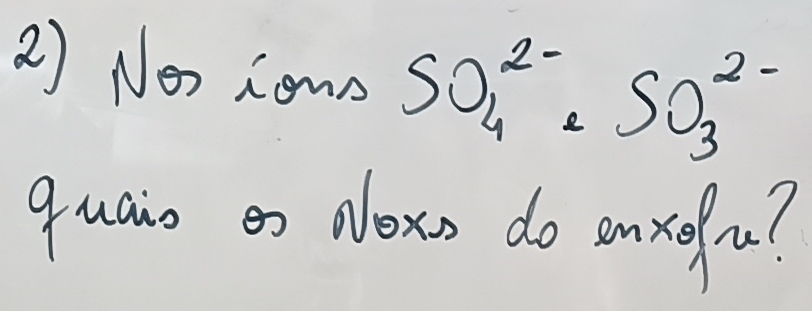 2) Nos íons SO₄²⁻ e SO₃²⁻
quais os Noxs do enxofre?